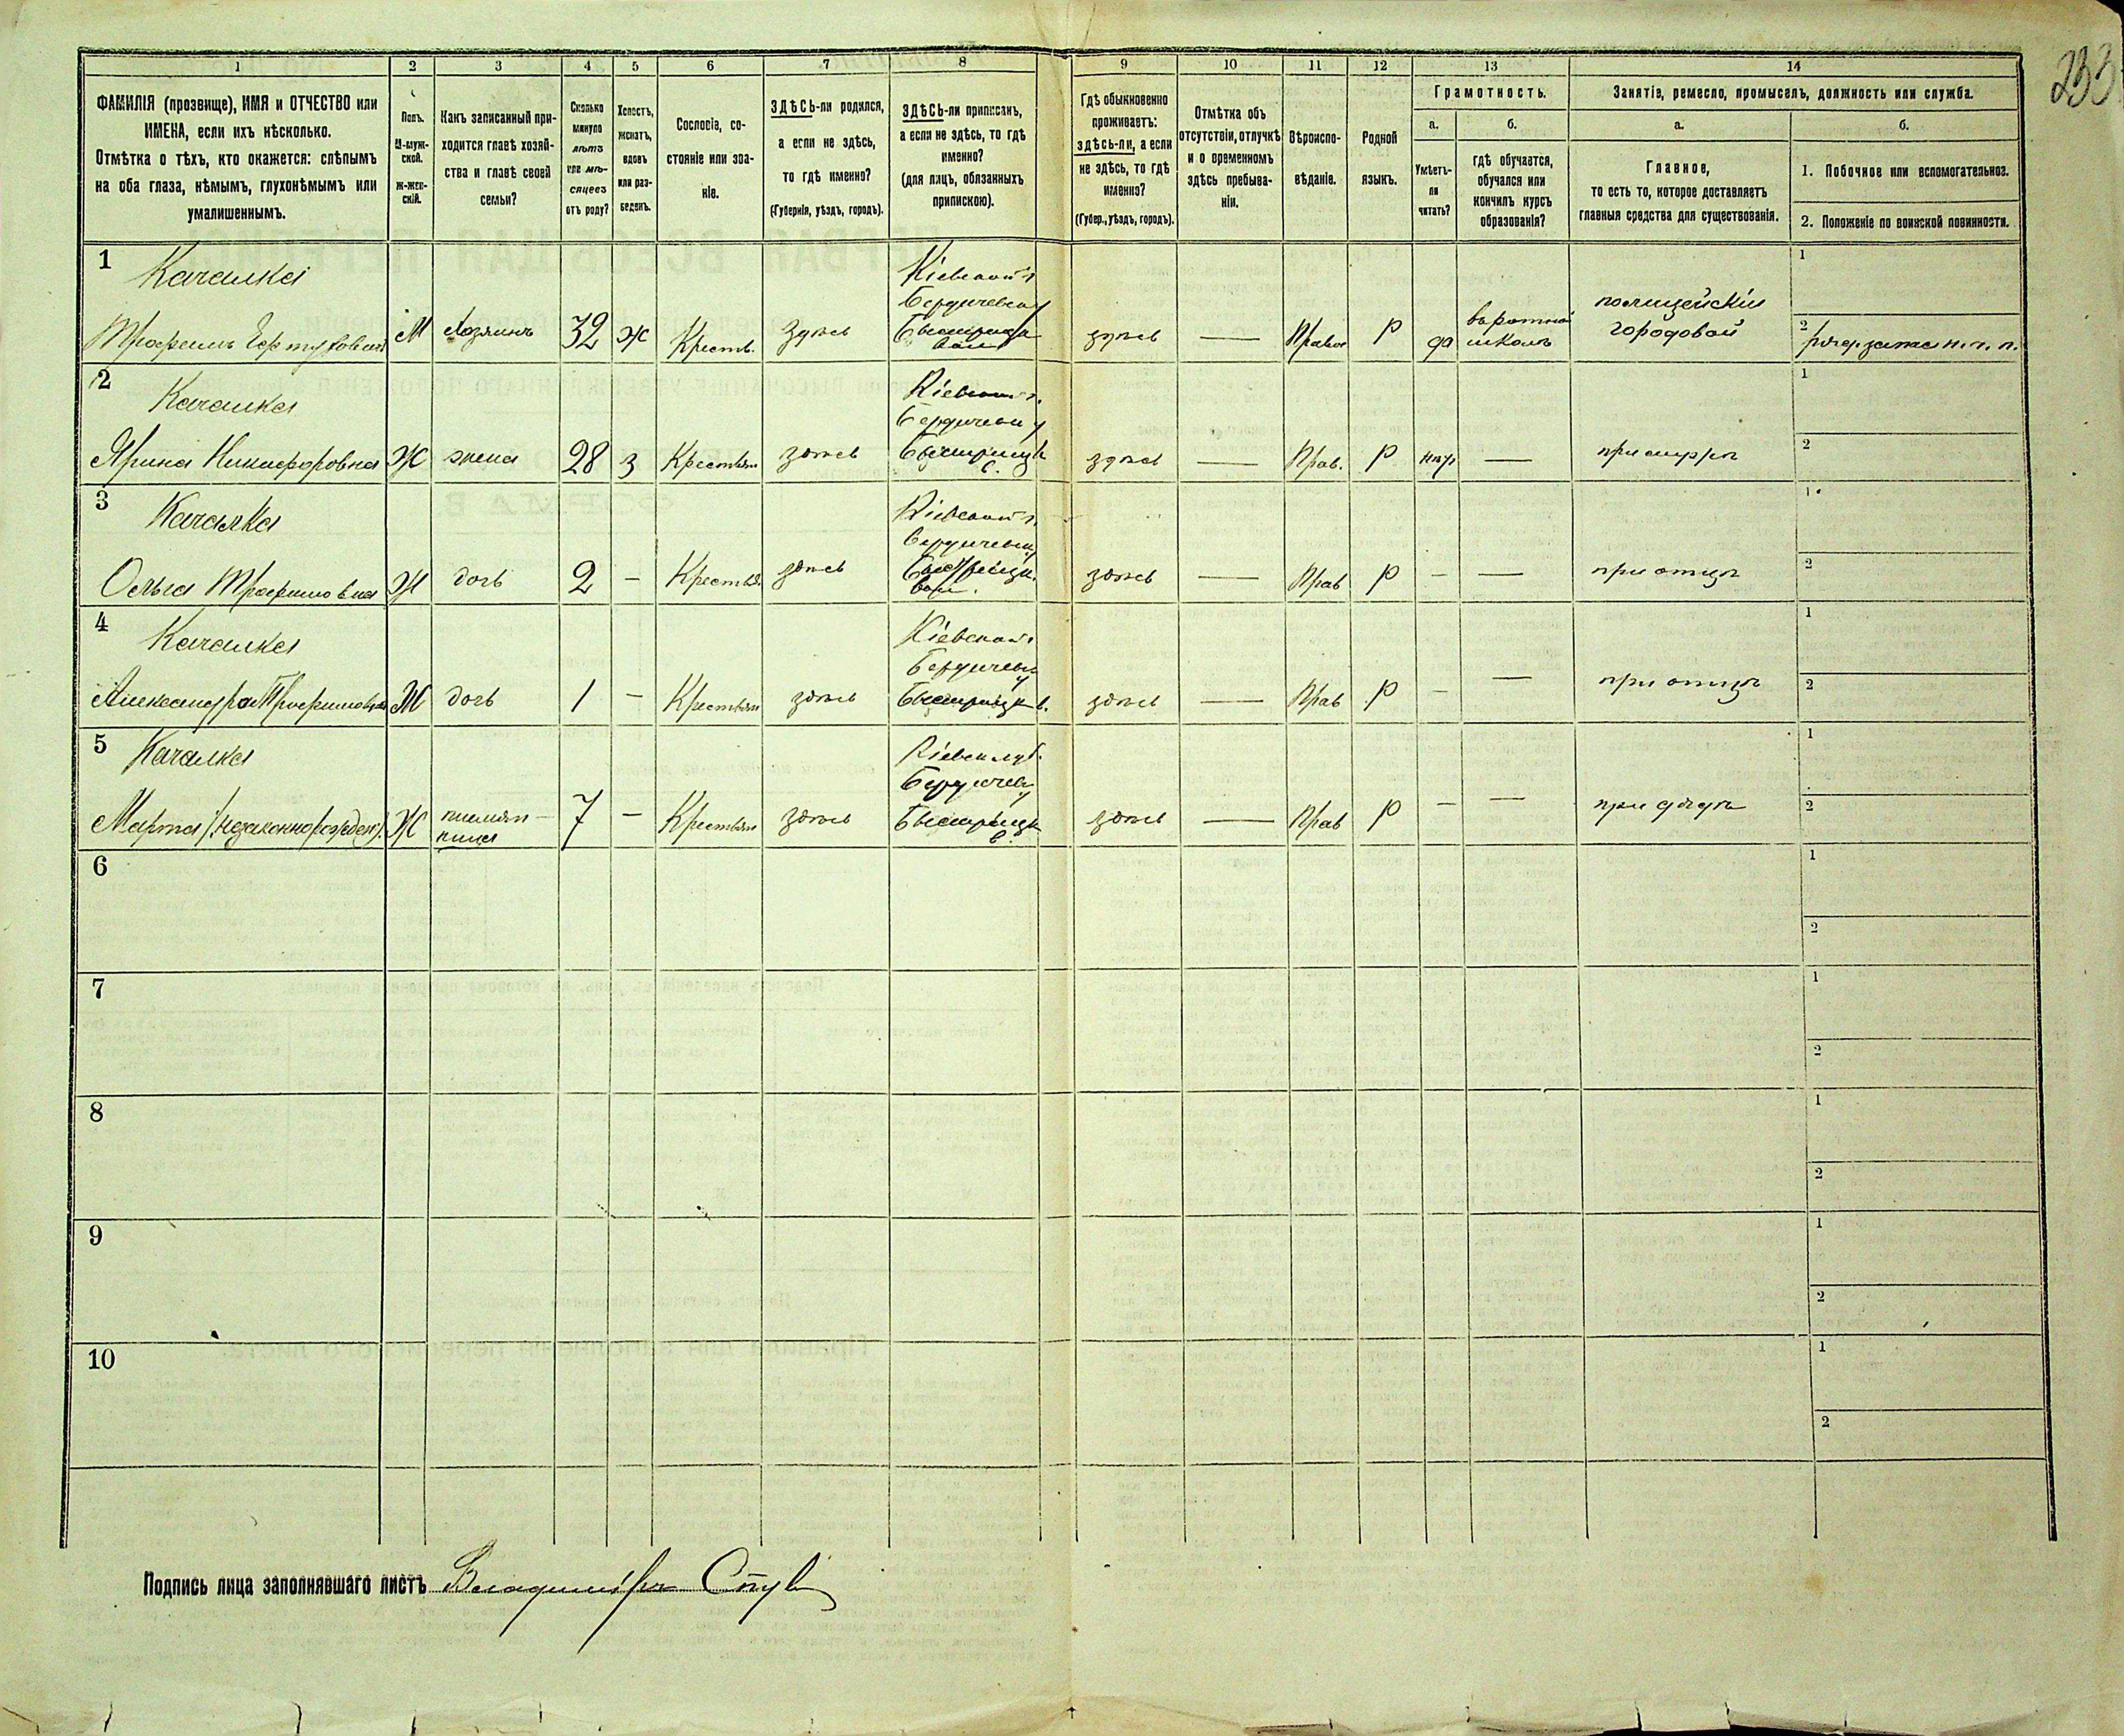 233
1 2 3 4 5 6 7 8 9 10 11 12 13 14
ФАМИЛІЯ (прозвище), ИМЯ и ОТЧЕСТВО или
ИМЕНА, если ихъ нѣсколько.
Отмѣтка о тѣхъ, кто окажется: слѣпымъ
на оба глаза, нѣмымъ, глухонѣмымъ или
умалишеннымъ.
Полъ.
М-муж-
ской.
Ж-жен-
скій.
Какъ записанный при-
ходится главѣ хозяй-
ства и главѣ своей
семьи?
Сколько
минуло
лѣтъ
или мѣ-
сяцевъ
отъ роду?
Холостъ,
женатъ,
вдовъ
или раз-
веденъ.
Сословіе, со-
стояніе или зва-
ніе.
ЗДѢСЬ-ли родился,
а если не здѣсь,
то гдѣ именно?
(Губернія, уѣздъ, городъ).
ЗДѢСЬ-ли приписанъ,
а если не здѣсь, то гдѣ
именно?
(для лицъ, обязанныхъ
припискою).
Гдѣ обыкновенно
проживаетъ:
здѣсь-ли, а если
не здѣсь, то гдѣ
именно?
(Губер., уѣздъ, городъ).
Отмѣтка объ
отсутствіи, отлучкѣ
и о временномъ
здѣсь пребыва-
ніи.
Вѣроиспо-
вѣданіе.
Родной
языкъ.
Грамотность.
а.
Умѣетъ-
ли
читать?
б.
гдѣ обучается,
обучался или
кончилъ курсъ
образованія?
Занятіе, ремесло, промыселъ, должность или служба.
а.
Главное,
то есть то, которое доставляетъ
главныя средства для существованія.
б.
1. Побочное или вспомогательное.
2. Положеніе по воинской повинности.
1
Качалка
Трофимъ
М
хозяинъ
32
ж
Крестъ.
здѣсь
Кіевской г.
Бердичевск у
здѣсь
—
Правос
Р
да
въ ротной
школѣ
полицейскій
городовой
1
2
2
Качалка
Ярина Никифоровна
Ж
жена
28
з
Крестьян
здѣсь
Кіевской г.
Бердичевск у
Быстрицк
в.
здѣсь
—
Прав.
Р
нѣт
—
при мужѣ
1
2
3
Качалка
Ольга Трофимовна
Ж
дочь
2
—
Крестьян
здѣсь
Кіевской г.
Бердичевск у
Быстрицк.
вол.
здѣсь
—
Прав
Р
—
—
при отцѣ
1
2
4
Качалка
Александра Трофимовна
Ж
дочь
1
—
Крестьян
здѣсь
Кіевской г
Бердичевск
у
Быстрицк в.
здѣсь
—
Прав
Р
—
—
при отцѣ
1
2
5
Качалка
Марта (незаконнорожден)
Ж
племян-
ница
7
—
Крестьян
здѣсь
Кіевск губ.
Бердичевск
у
Быстрицк
в.
здѣсь
—
Прав
Р
—
—
при дядѣ
1
2
6
1
2
7
1
2
8
1
2
9
1
2
10
1
2
Подпись лица заполнявшаго листъ Владиміръ